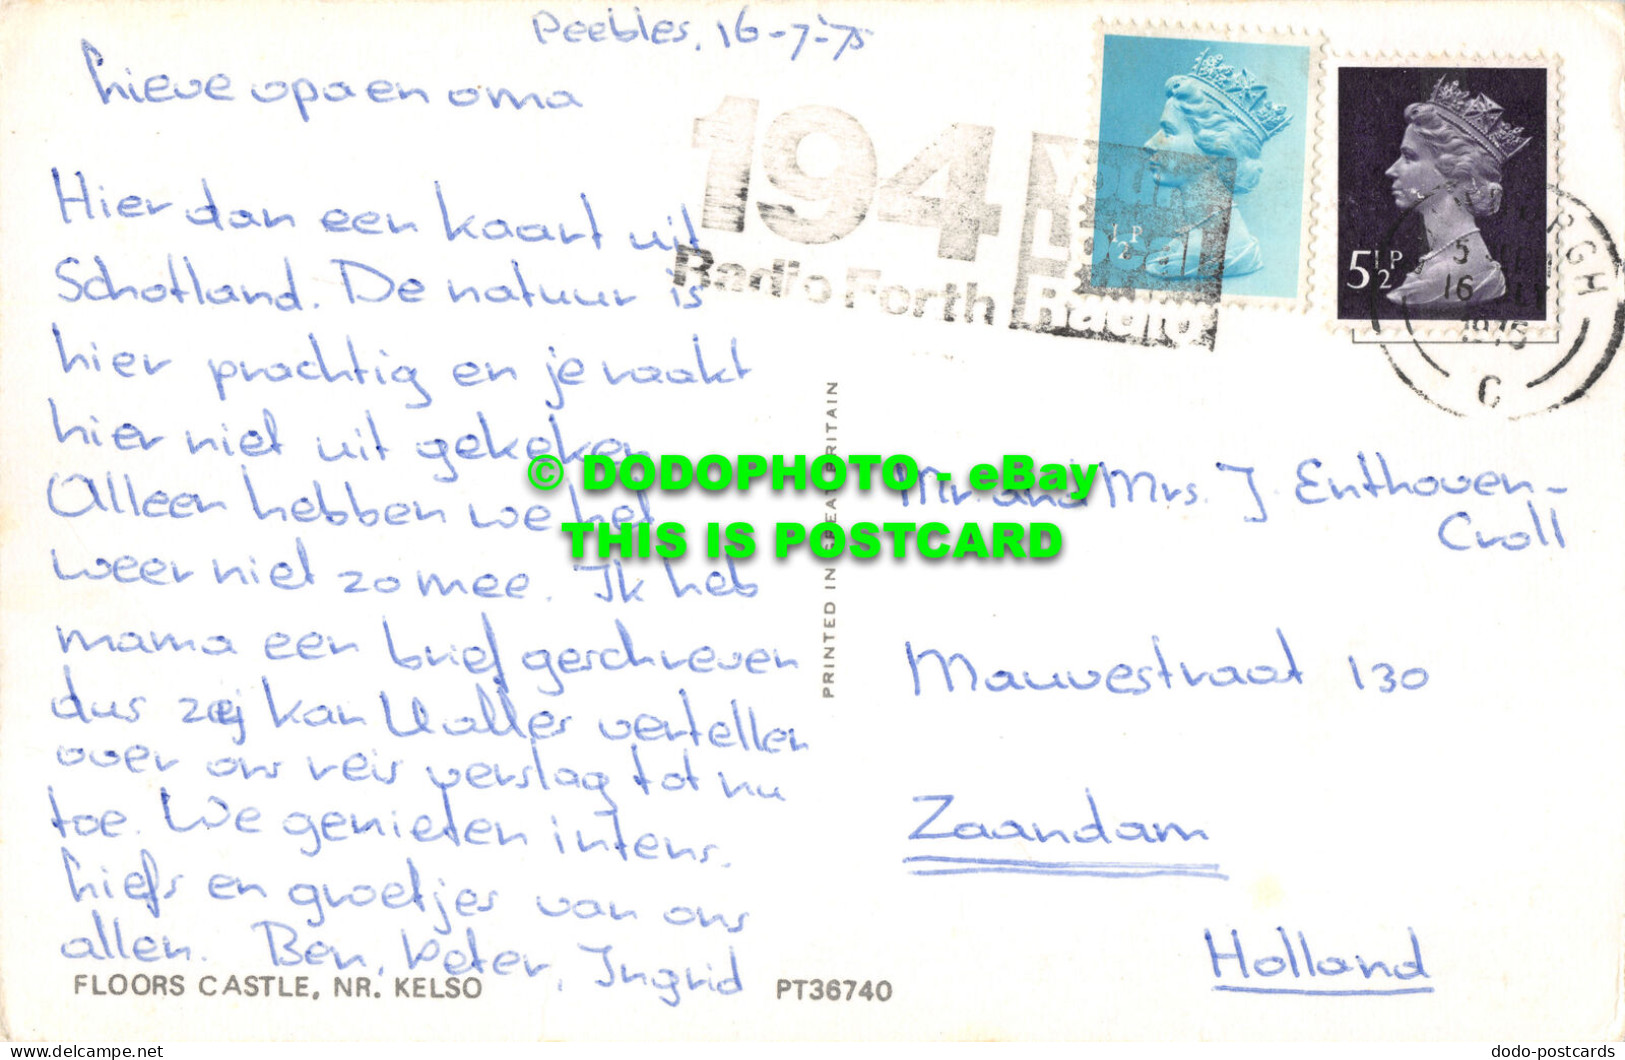 Peebles, 16-7-'75
Lieve opa en oma
Hier dan een kaart uit
Schotland. De natuur is
hier prachtig en je raakt
hier niet uit gekeken
Alleen hebben we het
weer niet zo mee. Ik heb
mama een brief geschreven
dus zij kan U alles vertellen
over ons reis verslag tot nu
toe. We genieten intens.
Liefs en groetjes van ons
allen. Ben, Peter, Ingrid
FLOORS CASTLE, NR. KELSO
PT36740
PRINTED IN GREAT BRITAIN
194
Radio Forth
Your
Local
Radio
½P
5½P
16
1975
C
Mr. and Mrs. J. Enthoven-
Croll
Mauvestraat 130
Zaandam
Holland
© DODOPHOTO - eBay
THIS IS POSTCARD
https://www.delcampe.net/en_US/collectibles/
dodo-postcards